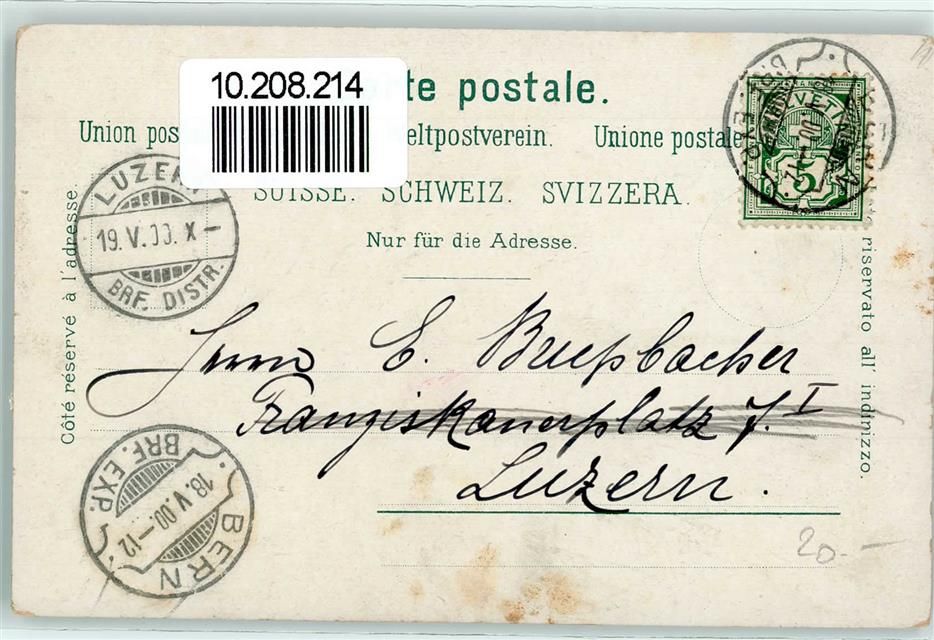 10.208.214
te postale.
Union pos eltpostverein. Unione postale
SUISSE. SCHWEIZ. SVIZZERA.
Nur für die Adresse.
Côté réservé à l'adresse.
riservato all' indirizzo.
LUZERN
19. V. 00. X –
BRF. DISTR.
HELVETIA
5
Herrn E.
Franziskanerplatz 7. I
Luzern.
BERN
18. V. 00.–12
BRF. EXP.
20.–